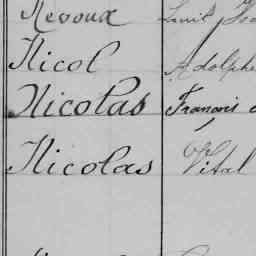 Nevoux
Nicol Adolphe
Nicolas François
Nicolas Vital